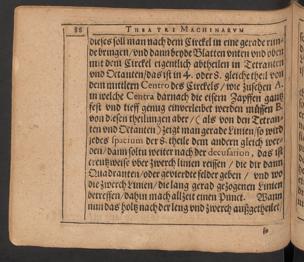 88 THEATRI MACHINARVM
dieses soll man nach dem Circkel in eine gerade run-
de bringen/ vnd dann beyde Blatten vnten vnd oben
mit dem Circkel eigentlich abtheilen in Tetranten
vnd Octanten/ das ist in 4. oder 8. gleiche theil von
dem mittlern Centro des Circkels/ wie zusehen A.
in welche Centra darnach die eisern Zapffen gantz
fest vnd tieff genug einverleibet werden müssen B.
von diesen theilungen aber/ (als von den Tetran-
ten vnd Octanten) zeigt man gerade Linien/ so wird
jedes spacium der 8. theile dem andern gleich wer-
den/ dann soltu weiter nach der decusation, das ist
creutzweise vber zwerch linien reissen/ die dir dann
Quadranten/ oder gevierdte felder geben/ vnd wo
die zwerch Linien/ die lang gerad gezogenen Linien
betreffen/ dahin mach allzeit einen Punct. Wann
nun das holtz nach der leng vnd zwerch außgetheilet/